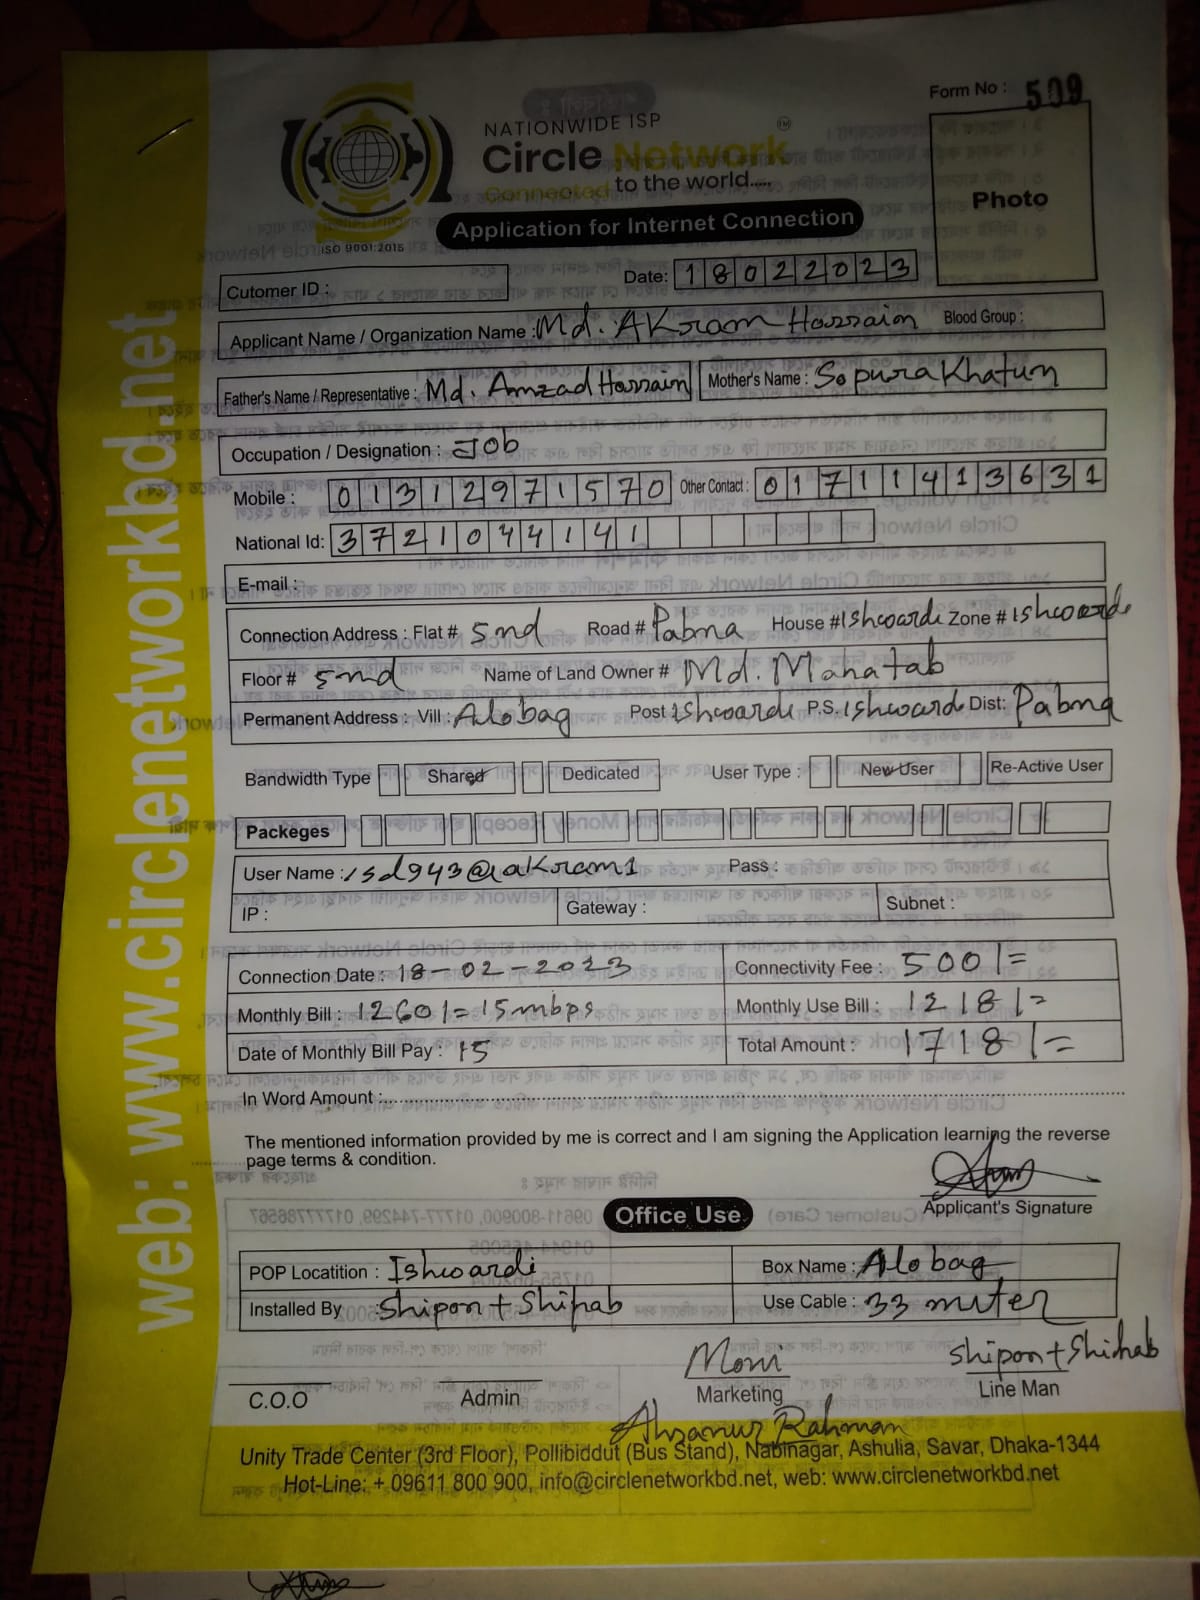 Form No : 509
NATIONWIDE ISP
Circle Network TM
Connected to the world.....
ISO 9001:2015
Application for Internet Connection
Photo
Cutomer ID :
Date: 18022023
Applicant Name / Organization Name : Md. AKram Hossain Blood Group :
Father's Name / Representative : Md. Amzad Hossain Mother's Name : Sopura Khatun
Occupation / Designation : Job
Mobile : 01312971570 Other Contact : 01711413631
National Id: 3721044141
E-mail :
Connection Address : Flat # 5nd Road # Pabna House # Ishwardi Zone # Ishwardi
Floor # 5nd Name of Land Owner # Md. Mahatab
Permanent Address : Vill : Alobag Post Ishwardi P.S. Ishwardi Dist: Pabna
Bandwidth Type Shared Dedicated User Type : New User Re-Active User
Packeges
User Name : isd943@akram1 Pass :
IP : Gateway : Subnet :
Connection Date : 18-02-2023 Connectivity Fee : 500/=
Monthly Bill : 1260/= 15 mbps Monthly Use Bill : 1218/=
Date of Monthly Bill Pay : 15 Total Amount : 1718/=
In Word Amount :
The mentioned information provided by me is correct and I am signing the Application learning the reverse
page terms & condition.
Applicant's Signature
Office Use
POP Locatition : Ishwardi Box Name : Alobag
Installed By : Shipon + Shihab Use Cable : 33 miter
Moni Shipon + Shihab
C.O.O Admin Marketing Line Man
Ahsanur Rahman
Unity Trade Center (3rd Floor), Pollibiddut (Bus Stand), Nabinagar, Ashulia, Savar, Dhaka-1344
Hot-Line: + 09611 800 900, info@circlenetworkbd.net, web: www.circlenetworkbd.net
web: www.circlenetworkbd.net